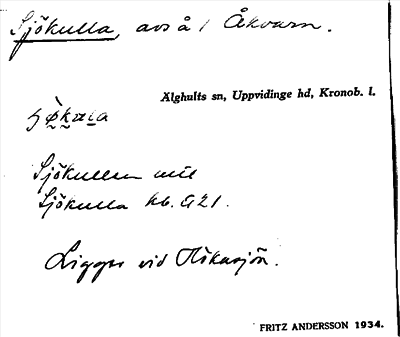 Sjökulla, avs å / Åkvarn.
Älghults sn, Uppvidinge hd, Kronob. l.
Sjökullen
Sjökulla hb. G21.
Ligger vid Økasjön.
FRITZ ANDERSSON 1934.